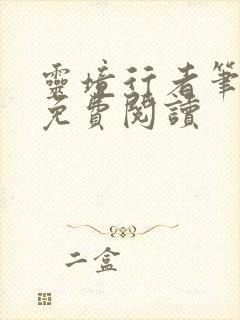 靈境行者筆
免費閱讀
二盒